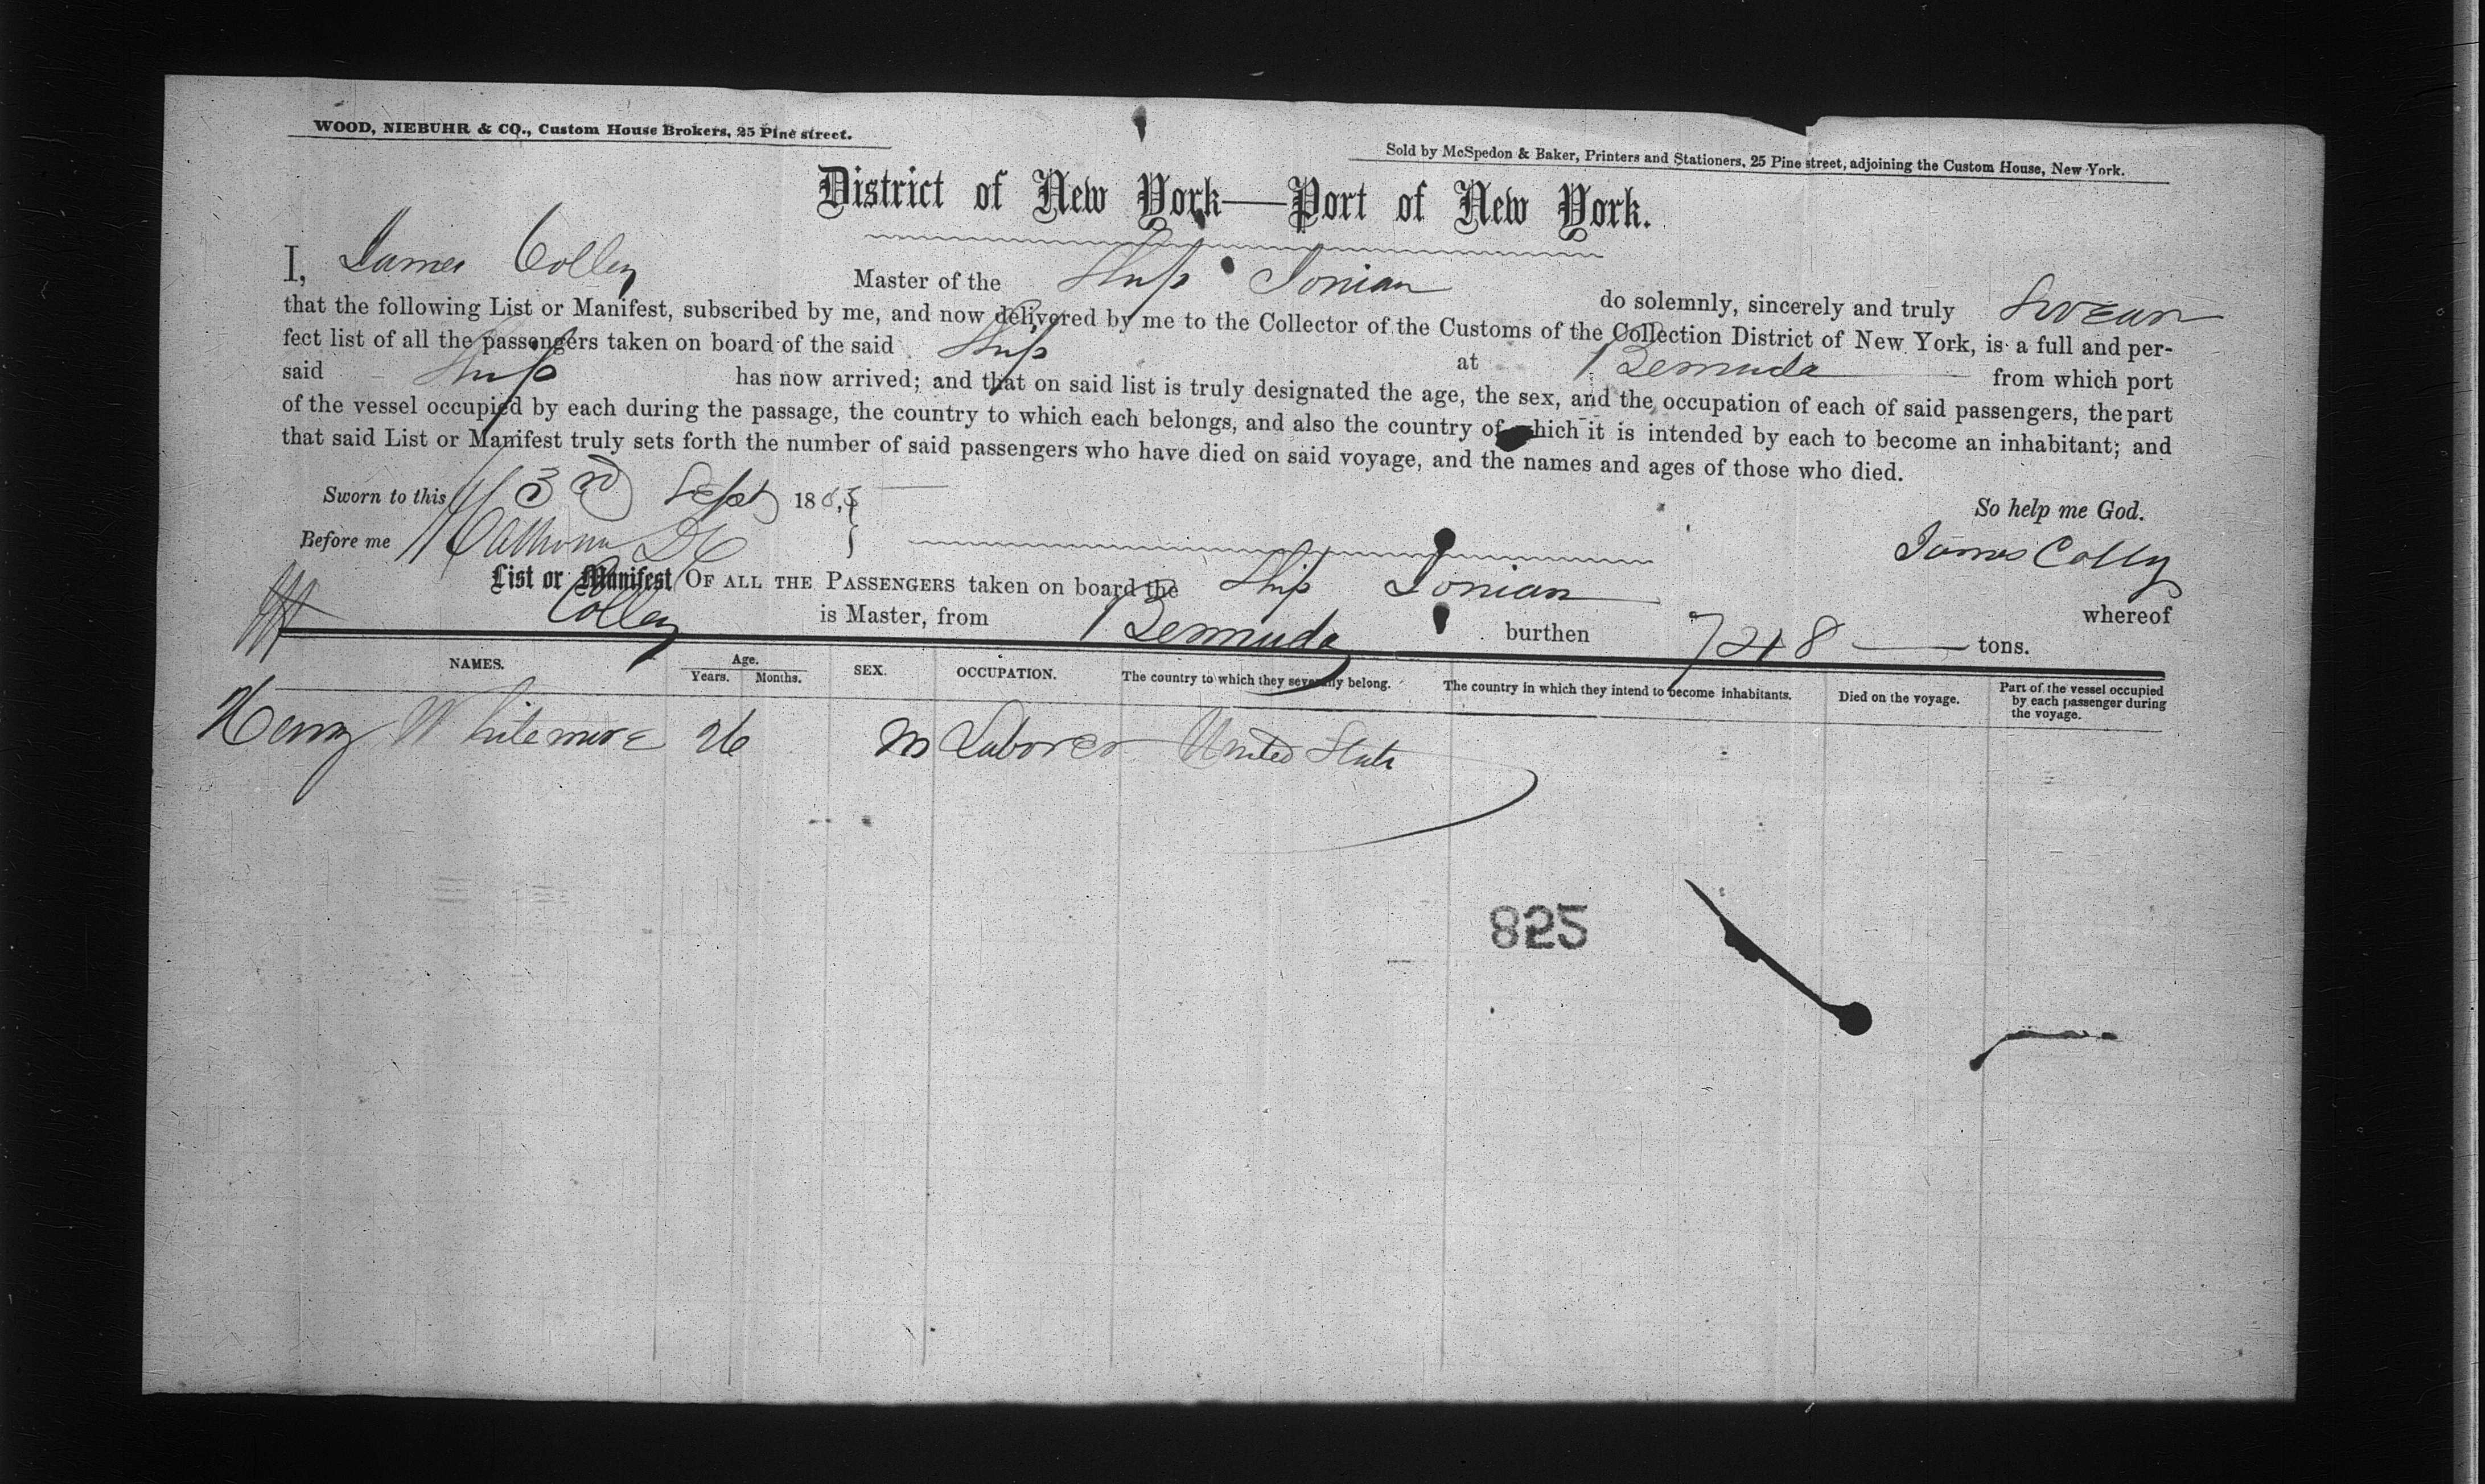 WOOD, NIEBUHR & CO., Custom House Brokers, 25 Pine street.
Sold by McSpedon & Baker, Printers and Stationers, 25 Pine street, adjoining the Custom House, New York.
District of New York—Port of New York.
I, James Colley Master of the Ship Ionian do solemnly, sincerely and truly Swear
that the following List or Manifest, subscribed by me, and now delivered by me to the Collector of the Customs of the Collection District of New York, is a full and per-
fect list of all the passengers taken on board of the said Ship at Bermuda from which port
said Ship has now arrived; and that on said list is truly designated the age, the sex, and the occupation of each of said passengers, the part
of the vessel occupied by each during the passage, the country to which each belongs, and also the country of which it is intended by each to become an inhabitant; and
that said List or Manifest truly sets forth the number of said passengers who have died on said voyage, and the names and ages of those who died.
Sworn to this 3rd Sept 186
So help me God.
Before me Calhoun DC
James Colley
List or Manifest OF ALL THE PASSENGERS taken on board the Ship Ionian whereof
Colley is Master, from Bermuda burthen 748 tons.
NAMES. Age. Years. Months. SEX. OCCUPATION. The country to which they severally belong. The country in which they intend to become inhabitants. Died on the voyage. Part of the vessel occupied by each passenger during the voyage.
Henry Whitemore 26 m Laborer United States
825